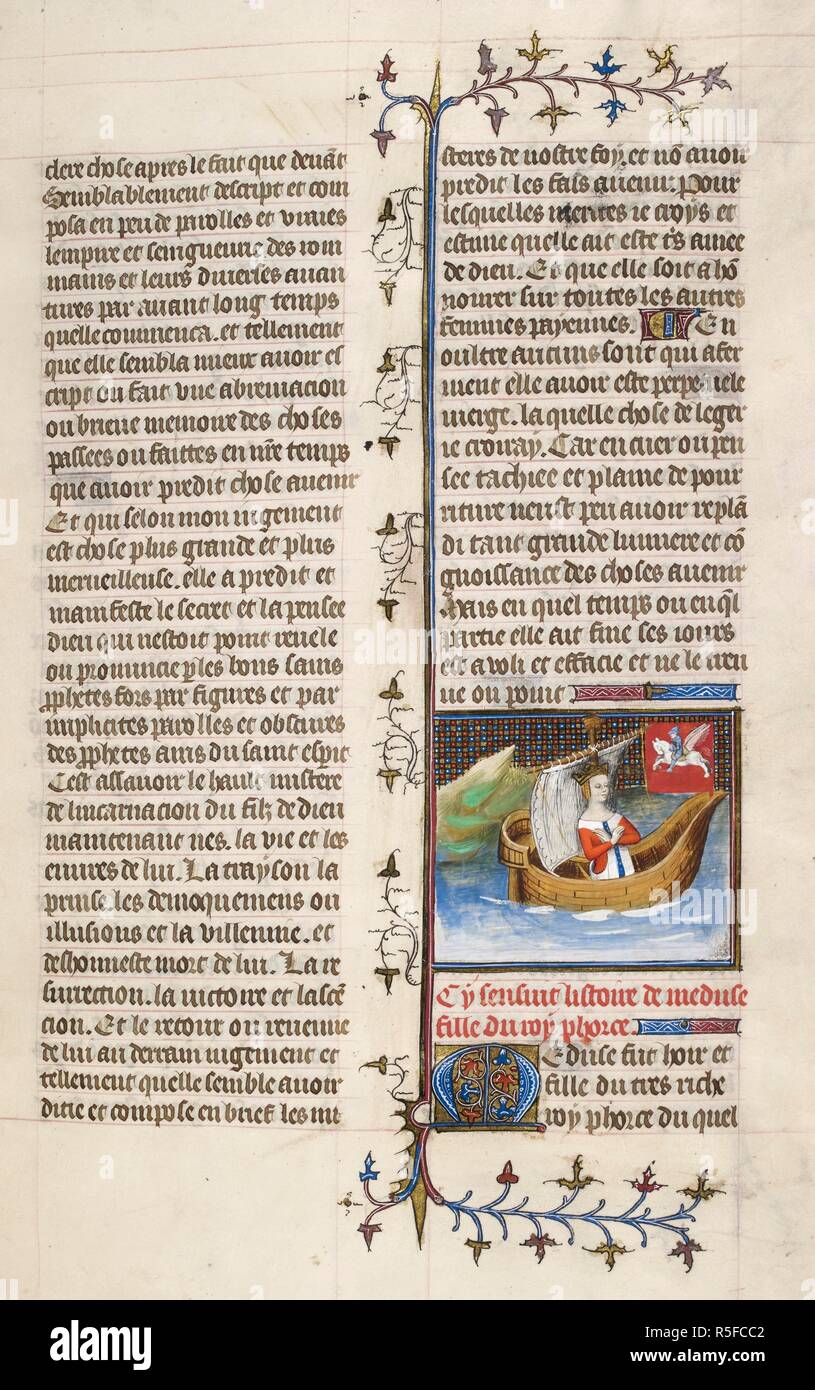 clere chose apres le fait que devāt
Semblablement descript et com
posa en peu de parolles et vraies
lempire et seingneurie des rom
mains et leurs diverses avan
tures par avant long temps
quelle commenca. et tellement
que elle sembla mieux avoir es
cript ou fait une abreviacion
ou brieve memoire des choses
passees ou faittes en nr̄e temps
que avoir predit chose avenir
Et qui selon mon iugement
est chose plus grande et plus
merveilleuse. elle a predit et
manifeste le secret et la pensee
dieu qui nestoit point revele
ou pronuncie ꝑ les bons sains
ꝓphetes fors par figures et par
implicites parolles et obscures
des ꝓphetes ains du saint esperit
Cest assavoir le hault mistere
de lincarnacion du filz de dieu
maintenant nes. la vie et les
euures de lui. La trayson la
prinse. les demoquemens ou
illusions et la villennie. et
deshonneste mort de lui. La re
surrection. la victoire et lascē
cion. Et le retour ou revenue
de lui au derrain iugement et
tellement quelle semble avoir
ditie et compose en brief les mi
steres de nostre foy. et nō avoir
predit les fais avenir. Pour
lesquelles merites ie croys et
estime quelle ait este ts̄ amee
de dieu. Et que elle soit a hō
nourer sur toutes les autres
femmes payennes. En
oultre aucuns sont qui afer
ment elle avoir este perpetuele
vierge. la quelle chose de leger
ie croiray. Car en cuer ou pen
see tachiee et plaine de pour
riture neust peu avoir resplā
di tant grande lumiere et cō
gnoissance des choses avenir
Mais en quel temps ou en q̄l
partie elle ait fine ses iours
est avoli et efface et ne le treu
ve ou point
Cy sensuit listoire de meduse
fille du roy phorce.
Meduse fut hoir et
fille du tres riche
roy phorce du quel
alamy
a
Image ID: R5FCC2
www.alamy.com